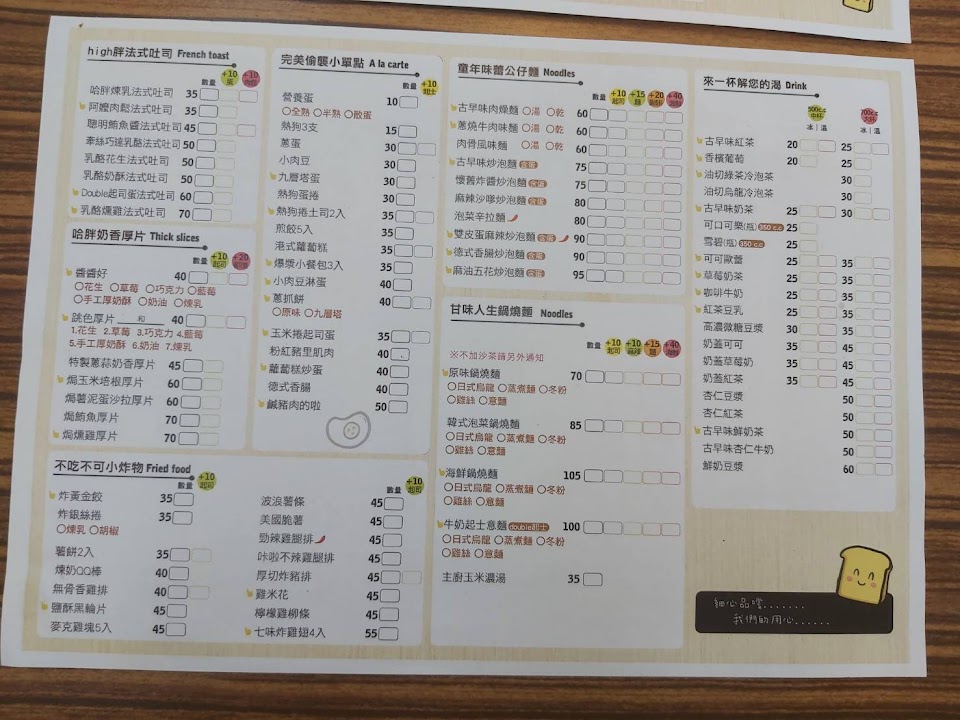 high胖法式吐司 French toast
數量 +10 蛋 +10
哈胖煉乳法式吐司 35
阿嬤肉鬆法式吐司 35
聰明鮪魚醬法式吐司 45
牽絲巧達乳酪法式吐司 50
乳酪花生法式吐司 50
乳酪奶酥法式吐司 50
Double起司蛋法式吐司 60
乳酪燻雞法式吐司 70
哈胖奶香厚片 Thick slices
數量 +10 起司 +20
醬醬好 40
○花生 ○草莓 ○巧克力 ○藍莓
○手工厚奶酥 ○奶油 ○煉乳
跳色厚片 和 40
1.花生 2.草莓 3.巧克力 4.藍莓
5.手工厚奶酥 6.奶油 7.煉乳
特製蔥蒜奶香厚片 45
焗玉米培根厚片 60
焗薯泥蛋沙拉厚片 60
焗鮪魚厚片 70
焗燻雞厚片 70
完美偷襲小單點 A la carte
數量 +10 起士
營養蛋 10
○全熟 ○半熟 ○散蛋
熱狗3支 15
蔥蛋 30
小肉豆 30
九層塔蛋 30
熱狗蛋捲 30
熱狗捲土司2入 35
煎餃5入 35
港式蘿蔔糕 35
爆漿小餐包3入 35
小肉豆淋蛋 40
蔥抓餅 40
○原味 ○九層塔
玉米捲起司蛋 35
粉紅豬里肌肉 40
蘿蔔糕炒蛋 40
德式香腸 40
鹹豬肉的啦 50
不吃不可小炸物 Fried food
數量 +10 起司
炸黃金餃 35
炸銀絲捲 35
○煉乳 ○胡椒
薯餅2入 35
煉奶QQ棒 40
無骨香雞排 40
鹽酥黑輪片 45
麥克雞塊5入 45
數量 +10 起司
波浪薯條 45
美國脆薯 45
勁辣雞腿排 45
咔啦不辣雞腿排 45
厚切炸豬排 45
雞米花 45
檸檬雞柳條 45
七味炸雞翅4入 55
童年味蕾公仔麵 Noodles
數量 +10 起司 +15 麵 +20 +40
古早味肉燥麵 ○湯 ○乾 60
蔥燒牛肉味麵 ○湯 ○乾 60
肉骨風味麵 ○湯 ○乾 60
古早味炒泡麵 含蛋 75
懷舊炸醬炒泡麵 含蛋 75
麻辣沙嗲炒泡麵 含蛋 80
泡菜辛拉麵 80
雙皮蛋麻辣炒泡麵 含蛋 90
德式香腸炒泡麵 含蛋 90
麻油五花炒泡麵 含蛋 95
甘味人生鍋燒麵 Noodles
數量 +10 起司 +10 +15 麵 +40
※不加沙茶請另外通知
原味鍋燒麵 70
○日式烏龍 ○蒸煮麵 ○冬粉
○雞絲 ○意麵
韓式泡菜鍋燒麵 85
○日式烏龍 ○蒸煮麵 ○冬粉
○雞絲 ○意麵
海鮮鍋燒麵 105
○日式烏龍 ○蒸煮麵 ○冬粉
○雞絲 ○意麵
牛奶起士意麵 double起士 100
○日式烏龍 ○蒸煮麵 ○冬粉
○雞絲 ○意麵
主廚玉米濃湯 35
來一杯解您的渴 Drink
500c.c 中杯 700c.c 大杯
冰｜溫 冰｜溫
古早味紅茶 20 25
香檳葡萄 20 25
油切綠茶冷泡茶 30
油切烏龍冷泡茶 30
古早味奶茶 25 30
可口可樂(瓶) 350 c.c 25
雪碧(瓶) 350 c.c 25
可可歐蕾 25 35
草莓奶茶 25 35
咖啡牛奶 25 35
紅茶豆乳 25 35
高濃微糖豆漿 30 35
奶蓋可可 35 45
奶蓋草莓奶 35 45
奶蓋紅茶 35 45
杏仁豆漿 50
杏仁紅茶 50
古早味鮮奶茶 50
古早味杏仁牛奶 50
鮮奶豆漿 60
細心品嚐.......
我們的用心......